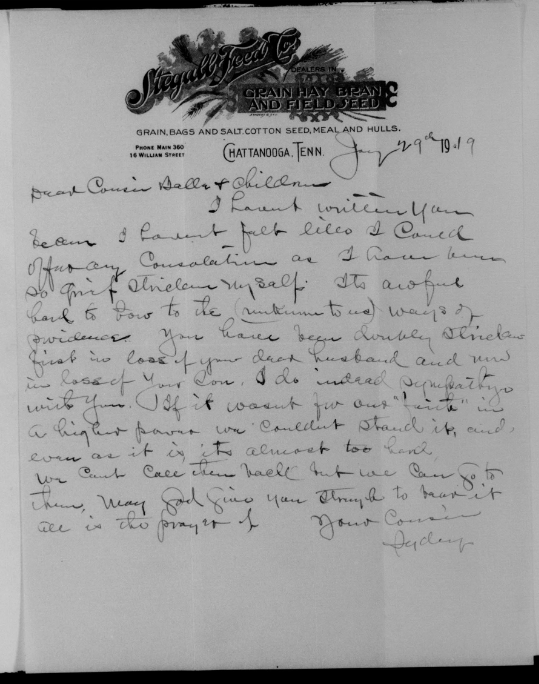 Stegall Feed Co.
DEALERS IN
GRAIN HAY BRAN
AND FIELD SEED
GRAIN, BAGS AND SALT. COTTON SEED, MEAL AND HULLS.
PHONE MAIN 360
16 WILLIAN STREET
CHATTANOOGA, TENN. Jany 29th 1919
Dear Cousin & Children
I havent written you
I havent felt like I could
offer any Consolation as I have been
so grief stricken myself. Its awful
hard to bow to the (unknown to us) ways of
providence. You have been doubly stricken
first in loss of your dear husband and now
in loss of your son. I do indeed sympathize
with you. If it wasnt for our "faith" in
a higher power we couldnt stand it, and
even as it is, its almost too hard.
We cant call them back but we can go to
them, May God give you strength to bear it
all is the prayer of Your Cousin
Sydney